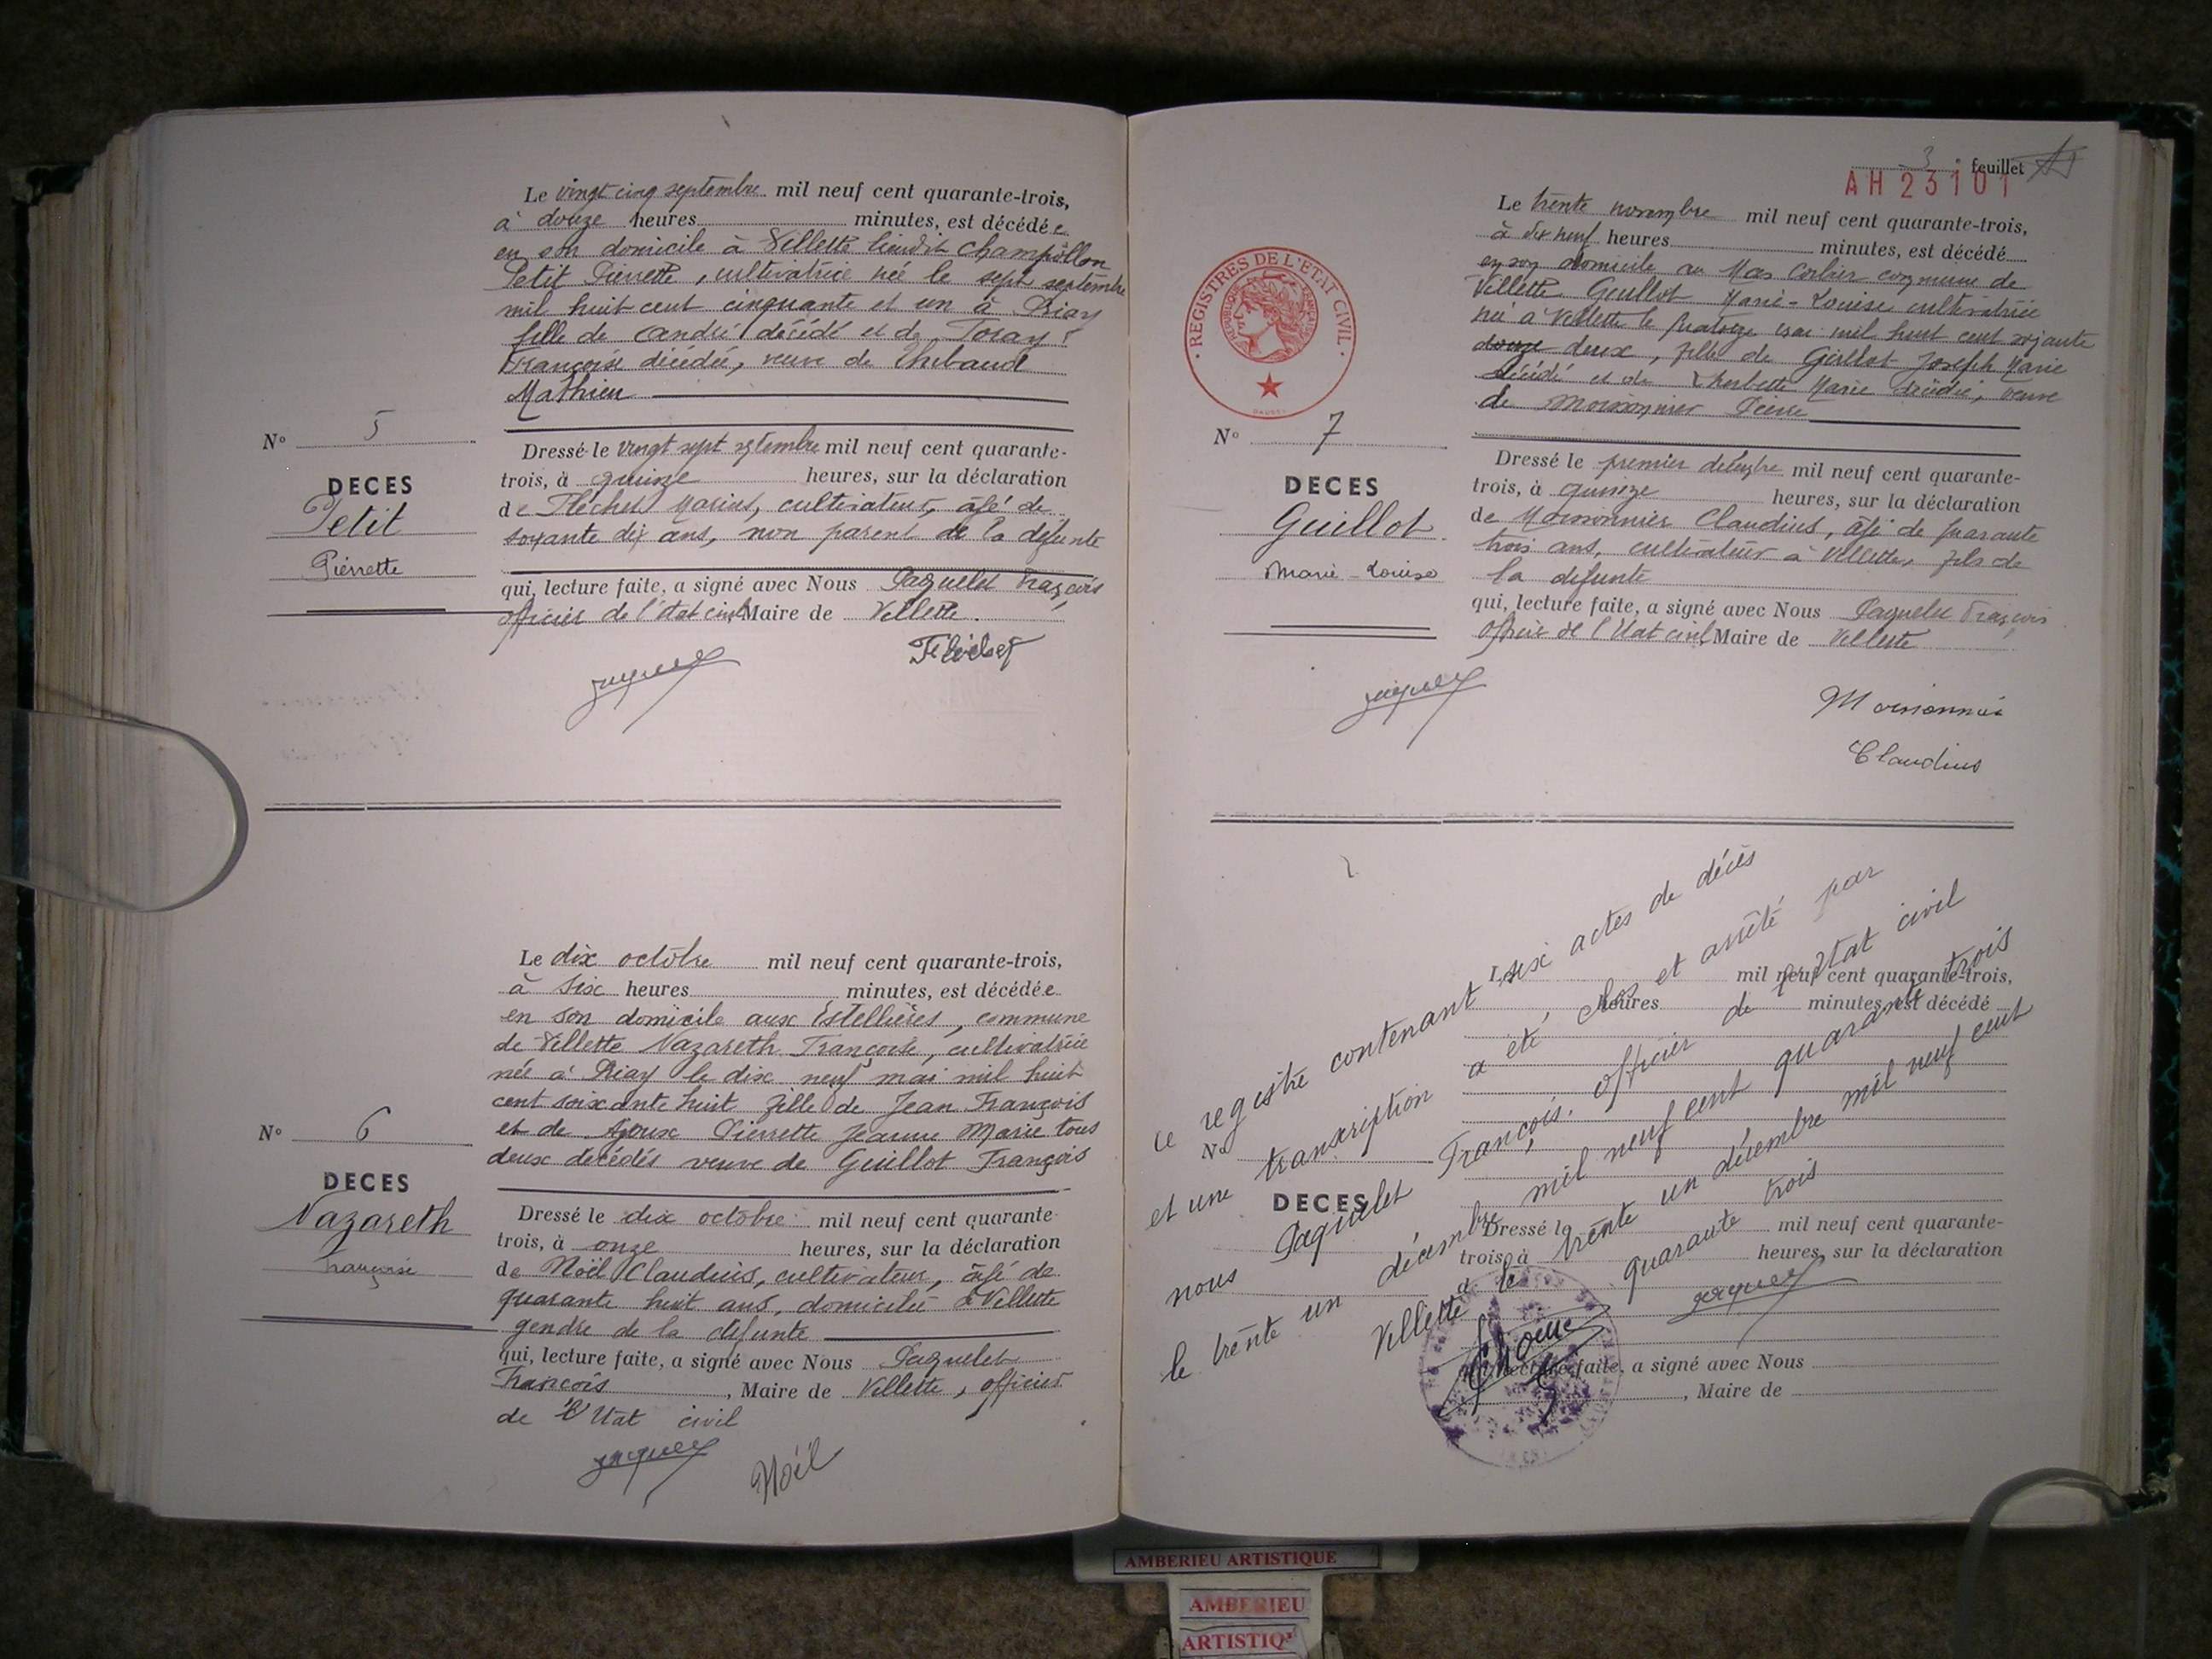 Le vingt cinq septembre mil neuf cent quarante-trois,
à douze heures minutes, est décédée
en son domicile à Villette lieudit Champollon
Petit Pierrette, cultivatrice née le sept septembre
mil huit cent cinquante et un à Priay
fille de André décédé et de
Françoise décédée, veuve de Thibaud
Mathieu
N° 5
DECES
Petit
Pierrette
Dressé le vingt sept septembre mil neuf cent quarante-
trois, à quinze heures, sur la déclaration
de Fléchet Marius, cultivateur, âgé de
soixante dix ans, non parent de la défunte
qui, lecture faite, a signé avec Nous Paquelet François
officier de l'état civil Maire de Villette.
Fléchet
Le dix octobre mil neuf cent quarante-trois,
à six heures minutes, est décédée
en son domicile aux Estellières, commune
de Villette Nazareth Françoise, cultivatrice
née à Priay le dix neuf mai mil huit
cent soixante huit fille de Jean François
et de Ajoux Pierrette Jeanne Marie tous
deux décédés veuve de Guillot François
N° 6
DECES
Nazareth
Françoise
Dressé le dix octobre mil neuf cent quarante-
trois, à onze heures, sur la déclaration
de Noël Claudius, cultivateur, âgé de
quarante huit ans, domicilié à Villette
gendre de la défunte
qui, lecture faite, a signé avec Nous Paquelet
François, Maire de Villette, officier
de l'Etat civil
Noël
3e feuillet
AH 23101
REGISTRES DE L'ETAT CIVIL
Le trente novembre mil neuf cent quarante-trois,
à dix neuf heures minutes, est décédé
en son domicile au Mas Corlier commune de
Villette Guillot Marie-Louise cultivatrice
née à Villette le quatorze mai mil huit cent soixante
douze deux, fille de Guillot Joseph Marie
décédé et de Marie décédée, veuve
de Moissonnier Pierre
N° 7
DECES
Guillot
Marie-Louise
Dressé le premier décembre mil neuf cent quarante-
trois, à quinze heures, sur la déclaration
de Moissonnier Claudius, âgé de quarante
trois ans, cultivateur à Villette, fils de
la défunte
qui, lecture faite, a signé avec Nous Paquelet François
officier de l'Etat civil Maire de Villette
Moissonnier
Claudius
ce registre contenant six actes de décès
et une transcription a été clos et arrêté par
nous Paquelet François, officier de l'état civil
le trente un décembre mil neuf cent quarante trois
Villette le trente un décembre mil neuf cent
quarante trois
Le mil neuf cent quarante-trois,
heures minutes, est décédé
N°
DECES
Dressé le mil neuf cent quarante-
trois, à heures, sur la déclaration
d
qui, lecture faite, a signé avec Nous
, Maire de
AMBERIEU ARTISTIQUE
AMBERIEU
ARTISTIQ